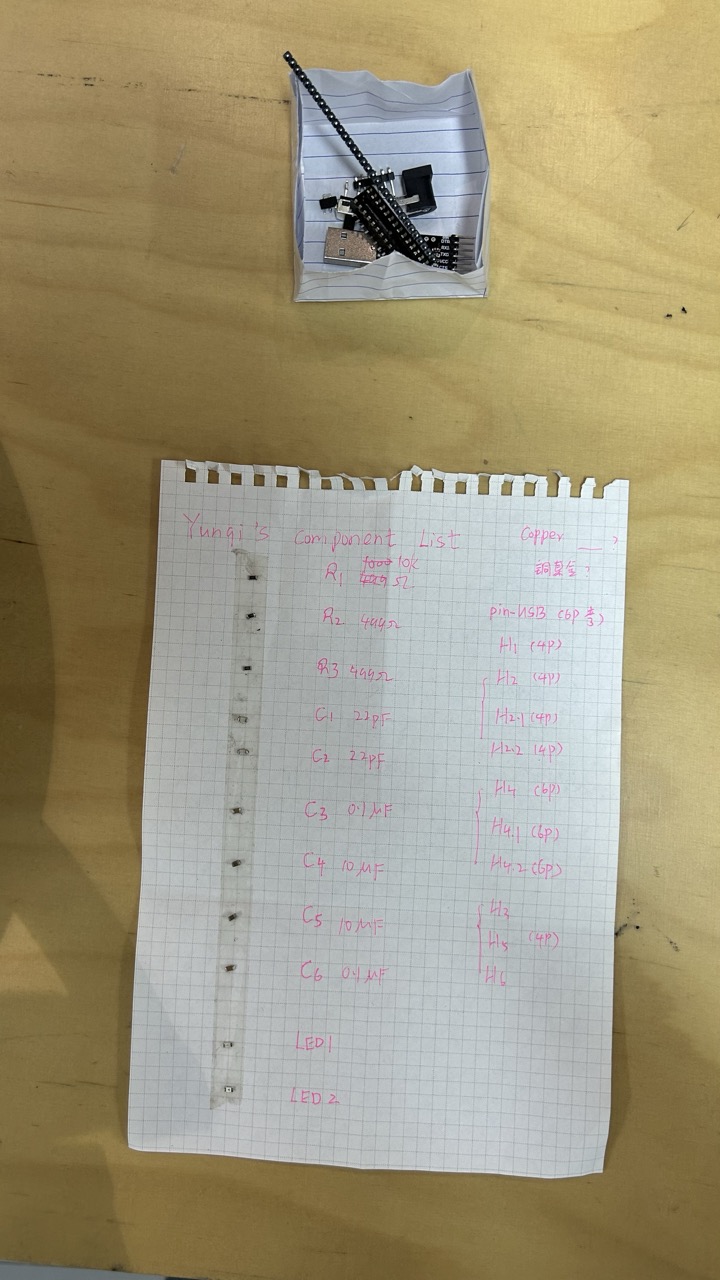 DTR
RXD
TXD
VCC
Yunqi's Component List
R1 10K Ω
R2 499Ω
R3 499Ω
C1 22pF
C2 22pF
C3 0.1μF
C4 10μF
C5 10μF
C6 0.1μF
LED1
LED2
Copper ___ ?
pin-USB (6p
H1 (4P)
H2 (4P)
H2.1 (4P)
H2.2 (4P)
H4 (6P)
H4.1 (6P)
H4.2 (6P)
H3
H5 (4P)
H6